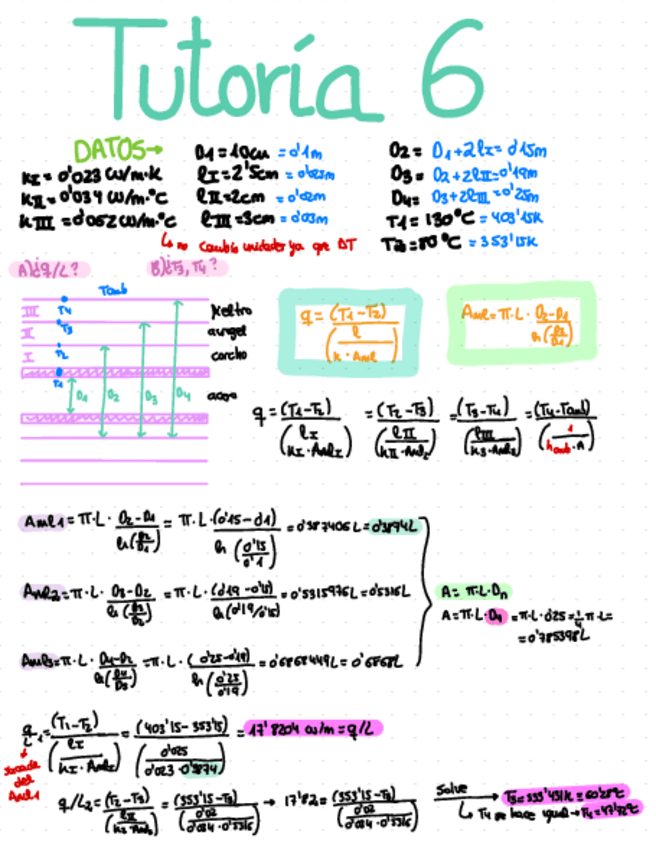 Tutoría 6
DATOS→
kI = 0'023 W/m·K
kII = 0'034 W/m·°C
kIII = 0'062 W/m·°C
D1 = 10cm = 0'1m
lI = 2'5cm = 0'025m
lII = 2cm = 0'02m
lIII = 3cm = 0'03m
↳ no cambio unidades ya que ΔT
D2 = D1 + 2lI = 0'15m
D3 = D2 + 2lII = 0'19m
D4 = D3 + 2lIII = 0'25m
T1 = 130°C = 403'15K
T2 = 80°C = 353'15K
A) ¿q/L?
B) ¿T3, T4?
Tamb
III T4
II T3
I T2
T1
D1 D2 D3 D4
corcho
acero
q = (T1-T2) / (l / (k·Aml))
Aml = π·L · (D2-D1) / ln(D2/D1)
q = (T1-T2) / (lI / (kI·AmlI)) = (T2-T3) / (lII / (kII·Aml2)) = (T3-T4) / (lIII / (k3·Aml3)) = (T4-Tamb) / (1 / (hamb·A))
Aml1 = π·L · (D2-D1) / ln(D2/D1) = π·L·(0'15-0'1) / ln(0'15/0'1) = 0'387406L = 0'3874L
Aml2 = π·L · (D3-D2) / ln(D3/D2) = π·L·(0'19-0'15) / ln(0'19/0'15) = 0'5315976L = 0'5316L
A = π·L·Dn
A = π·L·D4 = π·L·0'25 = 1/4 π·L =
= 0'785398L
Aml3 = π·L · = π·L · (0'25-0'19) / ln(0'25/0'19) = 0'6868449L = 0'6868L
q/L1 = (T1-T2) / (lI / (kI·Aml1)) = (403'15-353'15) / (0'025 / (0'023·0'3874)) = 17'8204 W/m = q/L
sacada del Aml1
q/L2 = (T2-T3) / (lII / (k2·Aml2)) = (353'15-T3) / (0'02 / (0'034·0'5316)) → 17'82 = (353'15-T3) / (0'02 / (0'034·0'5316))
Solve → T3 = 333'431K = 60'28°C
↳ T4 se hace igual → T4 = 47'72°C